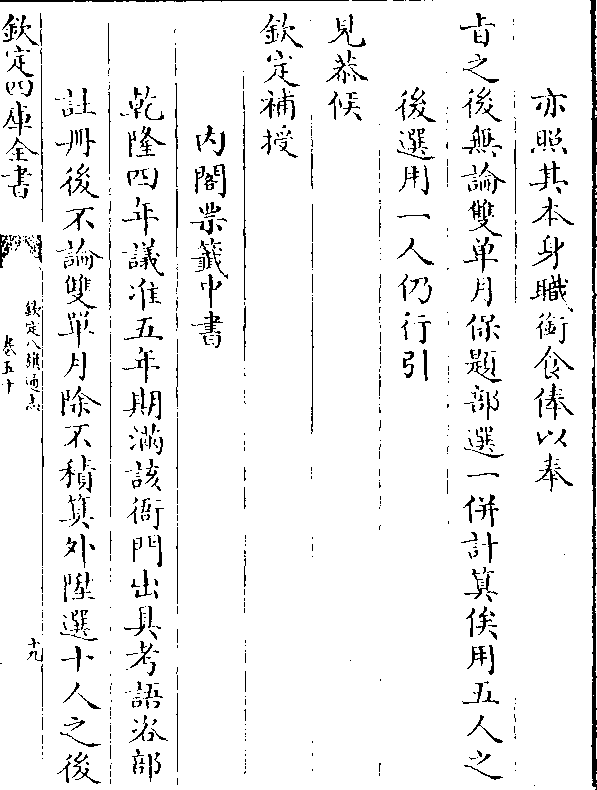 亦照其本身職銜食俸以奉
㫖之後無論雙單月保題部選一併計算俟用五人之
後選用一人仍行引
見恭候
欽定補授
内閣票籖中書
乾隆四年議准五年期滿該衙門出具考語咨部
註冊後不論雙單月除不積算外陞選十人之後
欽定四庫全書
欽定八旗通志
卷五十
十九